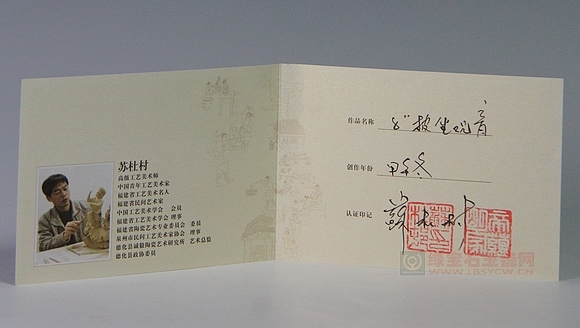 苏杜村
高级工艺美术师
中国青年工艺美术家
福建省工艺美术名人
福建省民间艺术家
中国工艺美术学会 会员
福建省工艺美术学会 理事
福建省陶瓷艺术专业委员会 委员
泉州市民间工艺美术家协会 理事
德化县诚毅陶瓷艺术研究所 艺术总监
德化县政协委员
作品名称 8"披坐观音
创作年份
认证印记 苏杜村
WWW.LBSYCW.CN